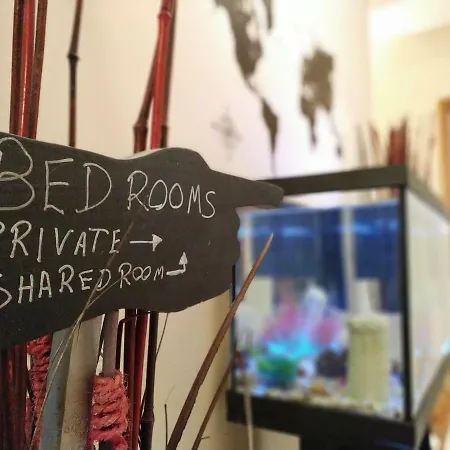 BEDROOMS
PRIVATE →
SHARED ROOM